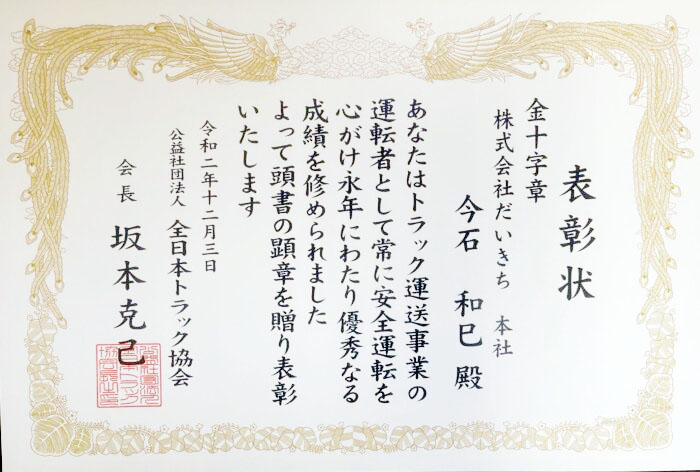 表彰状
金十字章
株式会社だいきち 本社
今石 和巳 殿
あなたはトラック運送事業の
運転者として常に安全運転を
心がけ永年にわたり優秀なる
成績を修められました
よって頭書の顕章を贈り表彰
いたします
令和二年十二月三日
公益社団法人 全日本トラック協会
会長 坂本克己